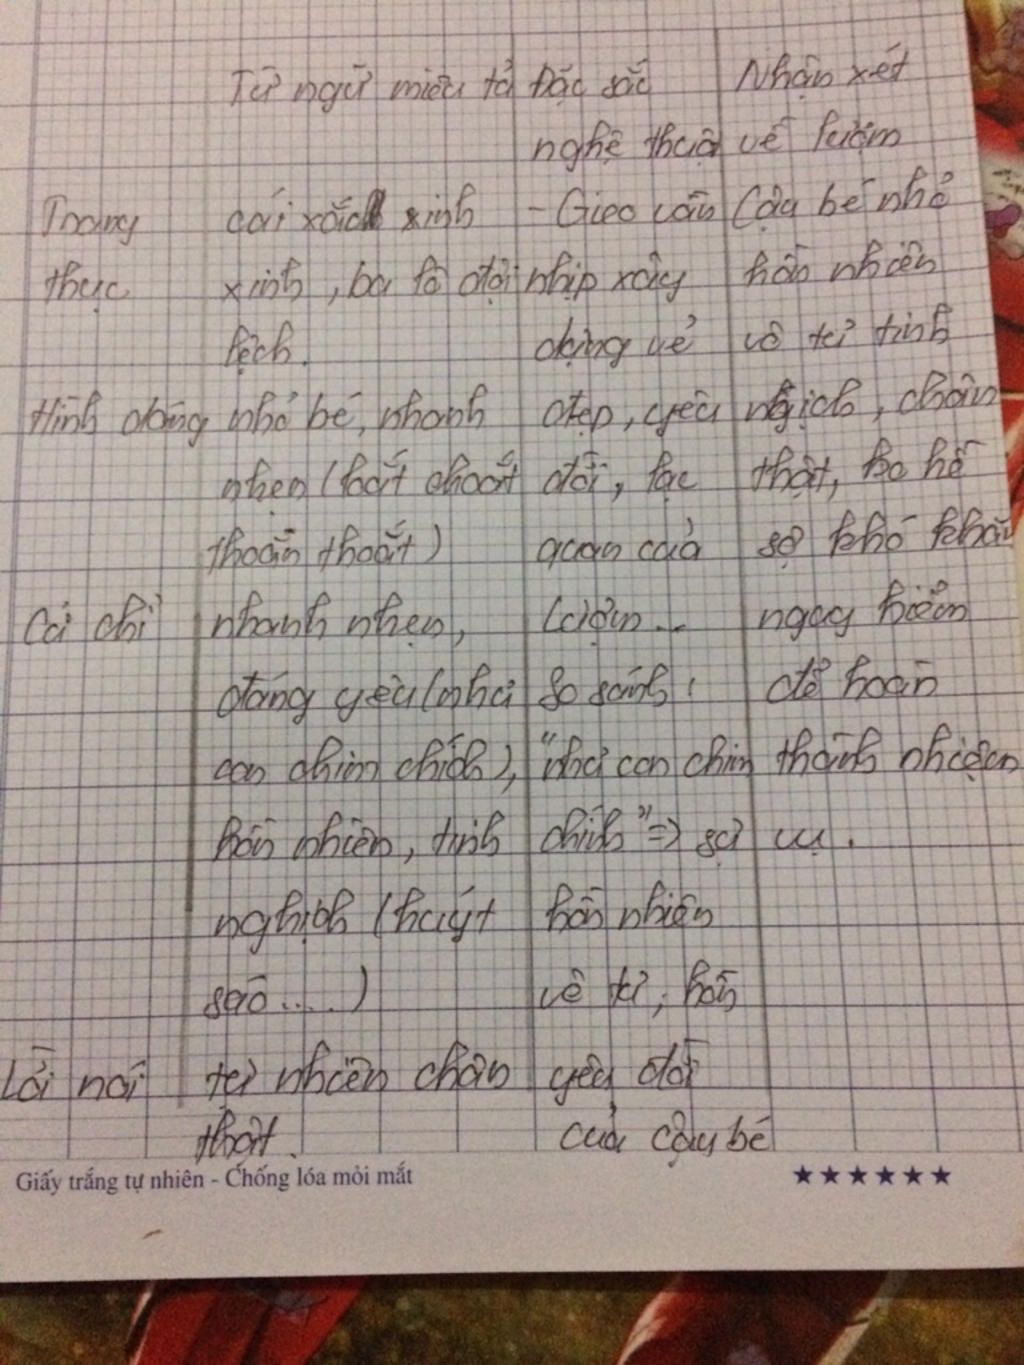 Từ ngữ miêu tả Đặc sắc Nhận xét
nghệ thuật về Lượm
Trang cái xắc xinh - Gieo vần Cậu bé nhỏ
thục xinh, ba lô đội nhịp xây hồn nhiên
lệch. dựng vẻ vô tư tinh
Hình dáng nhỏ bé, nhanh đẹp, yêu nghịch, chân
nhẹn (loắt choắt đời, lạc thật, ko hề
thoăn thoắt) quan của sợ khó khăn
Cử chỉ nhanh nhẹn, Lượm... nguy hiểm
đáng yêu (như So sánh: để hoàn
con chim chích), "như con chim thành nhiệm
hồn nhiên, tinh chích" => sự vụ.
nghịch (huýt hồn nhiên
sáo....) vô tư, hồn
Lời nói tự nhiên chân yêu đời
thật. của cậu bé
Giấy trắng tự nhiên - Chống lóa mỏi mắt ★★★★★★